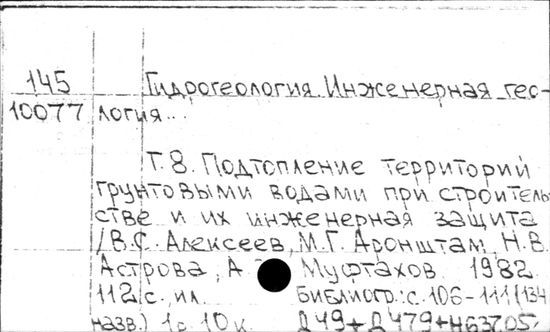 145 Гидрогеология. Инженерная гео-
10077 логия...
Т. 8. Подтопление территорий
грунтовыми водами при строитель-
стве и их инженерная защита
/В.С. Алексеев, М.Г. Аронштам, Н.В.
Астрова, А. Муфтахов. 1982.
112 с., ил. Библиогр.: с. 106-111 (134
назв.) 1р. 10к. Д49+Д479+Н637.05